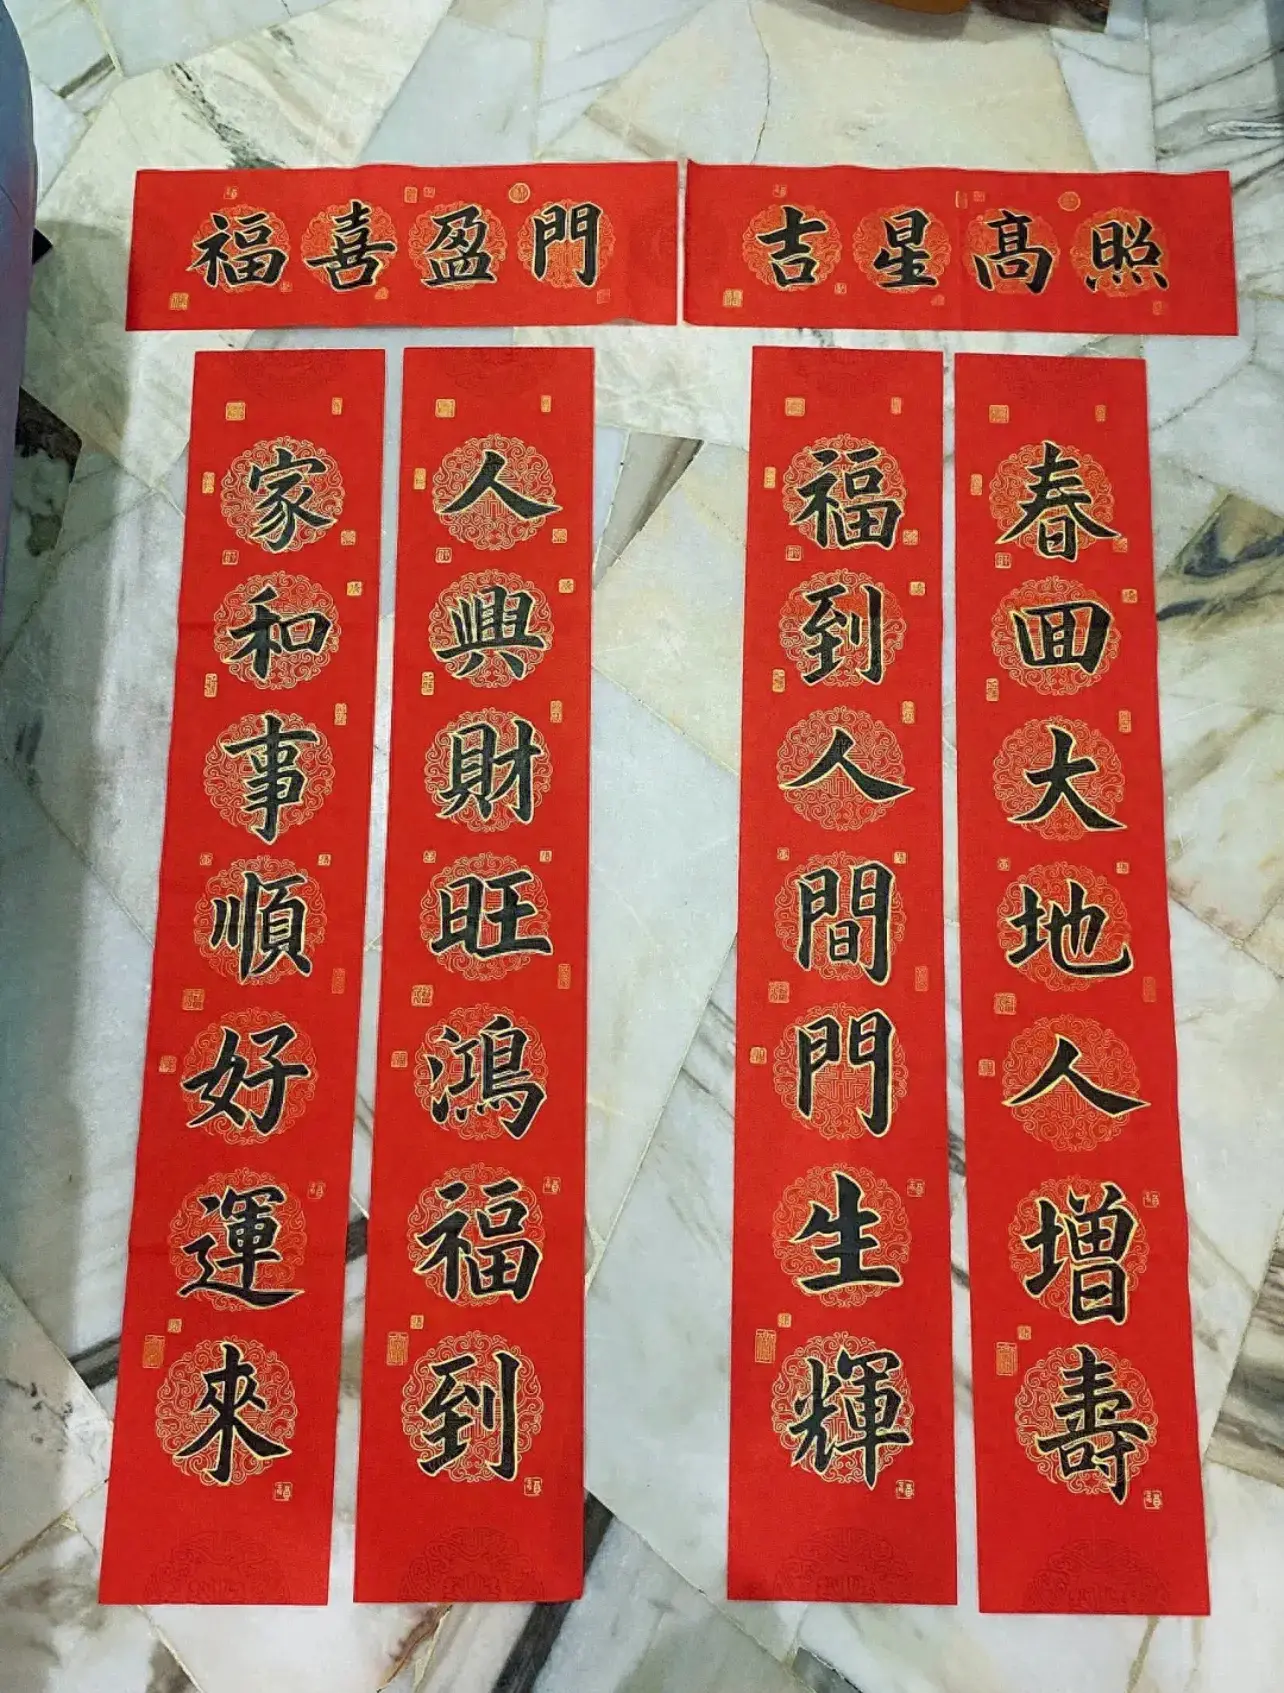 福喜盈門
吉星高照
家和事順好運來
人興財旺鴻福到
福到人間門生輝
春回大地人增壽